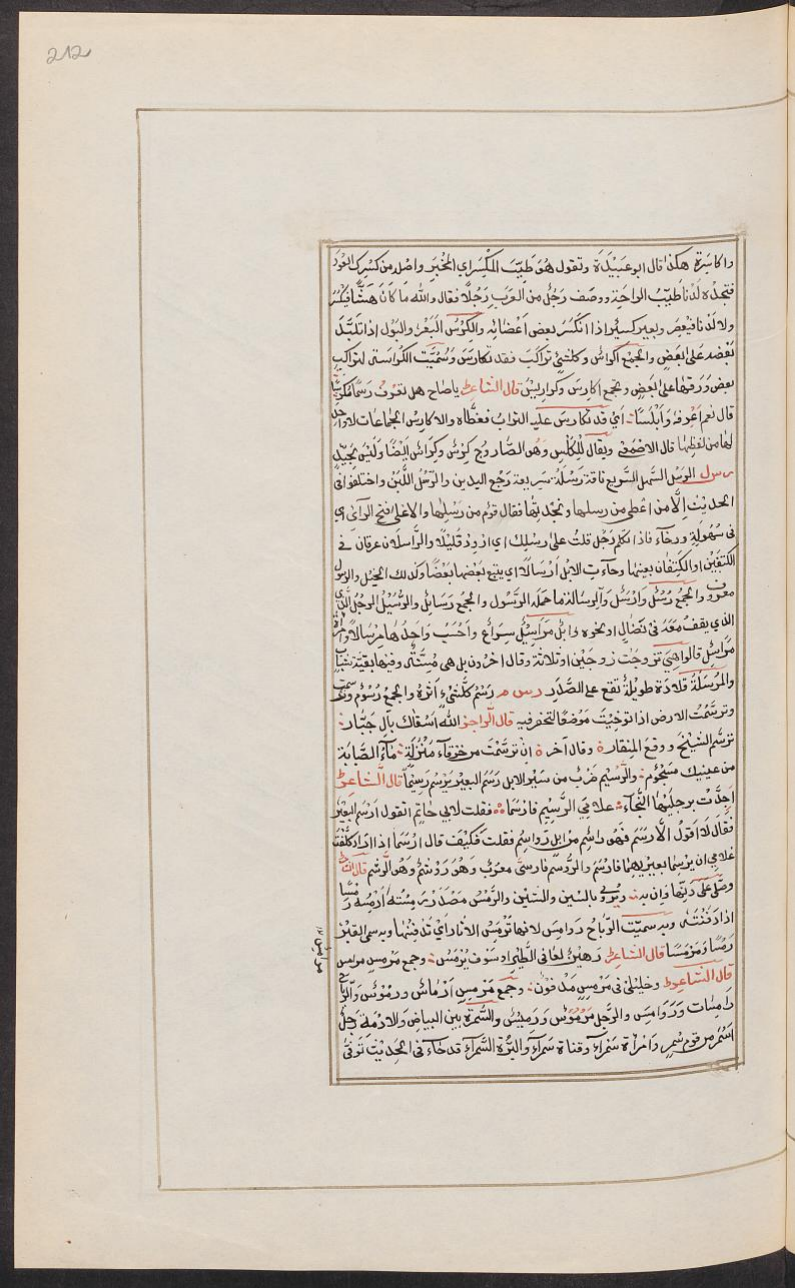 212
واكاسرة هكذا قال ابو عبيدة وتقول هو طيّب المكسر اي المخبر واصله من كسرك العود
فتجده لدنا طيّب الواحة ووصف رجل من العرب رجلا فقال والله ما كان هشّا فيكسر
ولا لدنا فيعصر وبعير كسير اذا انكسر بعض اعضائه والكرس البعر والبول اذا تلبّد
بعضه على البعض والجمع اكراس وكلشئ تراكب فقد تكارس وسمّيت الكراسة لتراكب
بعض ورقها على البعض والجمع اكارس وكراريس قال الشاعر يا صاح هل تعرف رسما مكرسا
قال نعم اعرفه وابلسا اي قد تكارس عليه التراب فغطّاه والاكارس الجماعات لا واحد
لها من لفظها قال الاصمعي ويقال للكلس وهو الصاروج كرس وكراس ايضا وليس بجيّد
رسل الرسل السهل السريع ناقة رسلة سريعة رجع اليدين والرسل اللبن واختلفوا في
الحديث الّا من اعطى من رسلها ونجدتها فقال قوم من رسلها والاعلى فتح الراء اي
في سهولة ورخاء فاذا تكلم رجل قلت على رسلك اي ازود قليلا والراسلان عرقان في
الكتفين او الكتفان بعينها وجاءت الابل ارسالا اي يتبع بعضها بعضا وكذلك الخيل والرسول
معروف والجمع رسل وارسل والرسالة ما حمله الرسول والجمع رسائل والرسيل الرجل الذي
الذي يقف معه في نضال او نحوه وابل مراسيل سراع واحسب واحدها مرسالا وامراة
مراسل قالوا هي تزوجت زوجين او ثلاثة وقال اخرون بل هي مسنّة وفيها بقية شباب
والمرسلة قلادة طويلة تقع على الصدر رسم رسم كلشئ اثره والجمع رسوم
وترسّمت الارض اذا توخيت موضعا لتحفر فيه قال الراجز الله اسقاك بآل جبار
ترسّم الشيخ ووقع المنقار وقال آخر ان ترسّمت من خرقاء منزلة ماء الصبابة
من عينيك مسجوم والرسيم ضرب من سير الابل رسم البعير يرسم رسيما قال الشاعر
اجدّت برجليها النجاء علامي الرسيم فارسما فقلت لابي حاتم اتقول ارسم البعير
فقال لا اقول الّا رسم فهو راسم من ابل رواسم فقلت فكيف قال ارسما اذا اراد كلفت
غلامي ان يرسما بعيريهما فارسم والرّوسم فارسي معرب وهو روشم وهو الرشم قال الشاعر
وصلى على دنّها وارتسم ويروى بالسين والشين والرمس مصدر رمسته ارمسه رمسا
اذا دفنته وبه سميت الرياح روامس لانها ترمس الاثار اي تدفنها وبه سمي القبر
رمسا ومرمسا قال الشاعر رهين لعافي الطير او سوف يرمس وجمع مرمس مرامس
قال الشاعر وخليلي في مرمس مدفون وجمع مرمس ارماس ورموس والرياح
رامسات وروامس والرجل مرموس ورميس والسمرة بين البياض والادمة رجل
اسمر من قوم سمر وامراة سمراء وقناة سمراء والبرّة السمراء قد جاء في الحديث